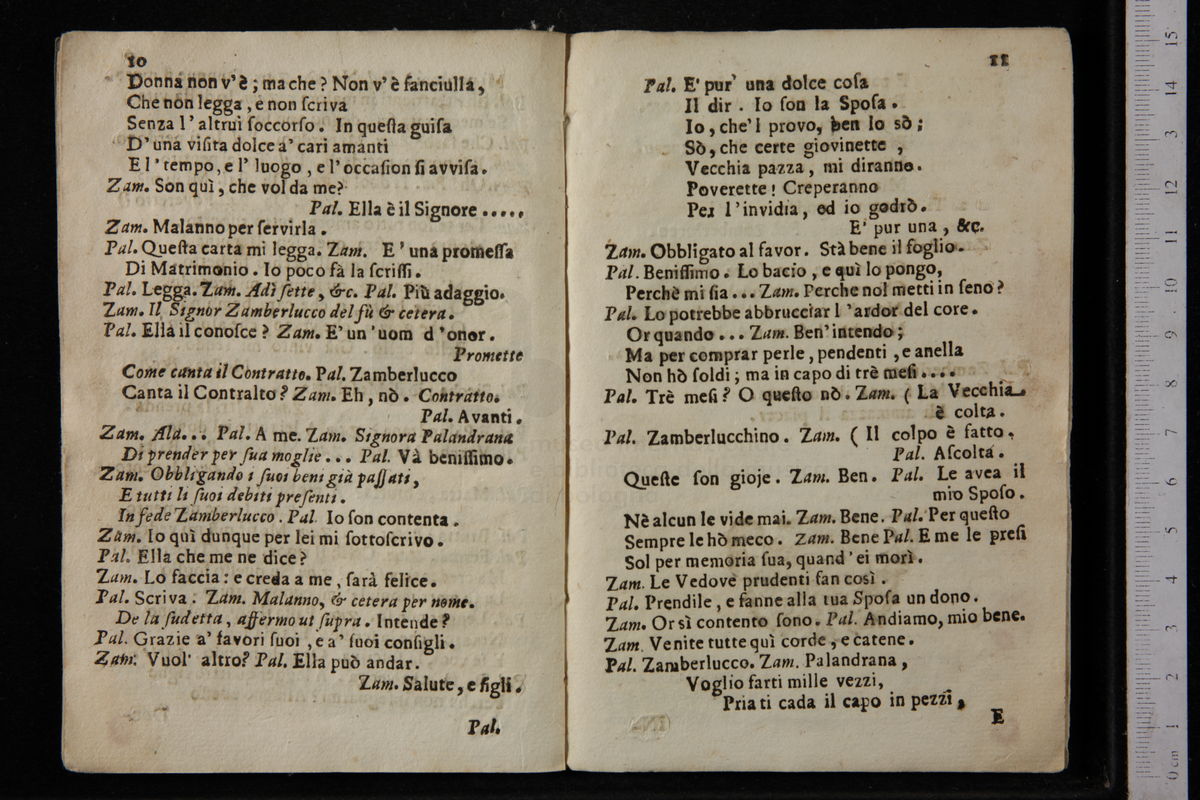 10
Donna non v'è ; ma che ? Non v'è fanciulla ,
Che non legga , e non ſcriva
Senza l' altrui ſoccorſo . In queſta guiſa
D' una viſita dolce a' cari amanti
E l' tempo, e l' luogo , e l' occaſion ſi avviſa .
Zam. Son quì , che vol da me?
Pal. Ella è il Signore .....
Zam. Malanno per ſervirla .
Pal. Queſta carta mi legga. Zam. E' una promeſſa
Di Matrimonio . Io poco fà la ſcriſſi .
Pal. Legga. Zam. Adì ſette , &c. Pal. Più adaggio.
Zam. Il Signor Zamberlucco del fù & cetera .
Pal. Ella il conoſce ? Zam. E' un 'uom d 'onor .
Promette
Come canta il Contratto. Pal. Zamberlucco
Canta il Contralto ? Zam. Eh , nò . Contratto.
Pal. Avanti .
Zam. Ala... Pal. A me. Zam. Signora Palandrana
Di prender per ſua moglie ... Pal. Và beniſſimo.
Zam. Obbligando i ſuoi beni già paſſati ,
E tutti li ſuoi debiti preſenti .
In fede Zamberlucco . Pal. Io ſon contenta .
Zam. Io quì dunque per lei mi ſottoſcrivo .
Pal. Ella che me ne dice ?
Zam. Lo faccia : e creda a me , ſarà felice .
Pal. Scriva : Zam. Malanno, & cetera per nome.
De la ſudetta , affermo ut ſupra . Intende ?
Pal. Grazie a' favori ſuoi , e a' ſuoi conſigli .
Zam. Vuol' altro? Pal. Ella può andar .
Zam. Salute, e figli .
Pal.
11
Pal. E' pur' una dolce coſa
Il dir . Io ſon la Spoſa .
Io , che'l provo, ben lo sò ;
Sò, che certe giovinette ,
Vecchia pazza , mi diranno.
Poverette ! Creperanno
Per l'invidia, ed io godrò .
E' pur una , &c.
Zam. Obbligato al favor . Stà bene il foglio .
Pal. Beniſſimo . Lo bacio , e quì lo pongo,
Perchè mi ſia ... Zam. Perche nol metti in ſeno ?
Pal. Lo potrebbe abbrucciar l 'ardor del core .
Or quando ... Zam. Ben' intendo ;
Ma per comprar perle , pendenti , e anella
Non hò ſoldi ; ma in capo di trè meſi ....
Pal. Trè meſi ? O queſto nò . Zam. ( La Vecchia
è colta .
Pal. Zamberlucchino . Zam. ( Il colpo è fatto .
Pal. Aſcolta .
Queſte ſon gioje . Zam. Ben . Pal. Le avea il
mio Spoſo .
Nè alcun le vide mai. Zam. Bene . Pal. Per queſto
Sempre le hò meco . Zam. Bene Pal. E me le preſi
Sol per memoria ſua, quand' ei morì .
Zam. Le Vedove prudenti fan così .
Pal. Prendile , e fanne alla tua Spoſa un dono .
Zam. Or sì contento ſono . Pal. Andiamo, mio bene.
Zam. Venite tutte quì corde , e catene .
Pal. Zamberlucco. Zam. Palandrana ,
Voglio farti mille vezzi ,
Pria ti cada il capo in pezzi ,
E